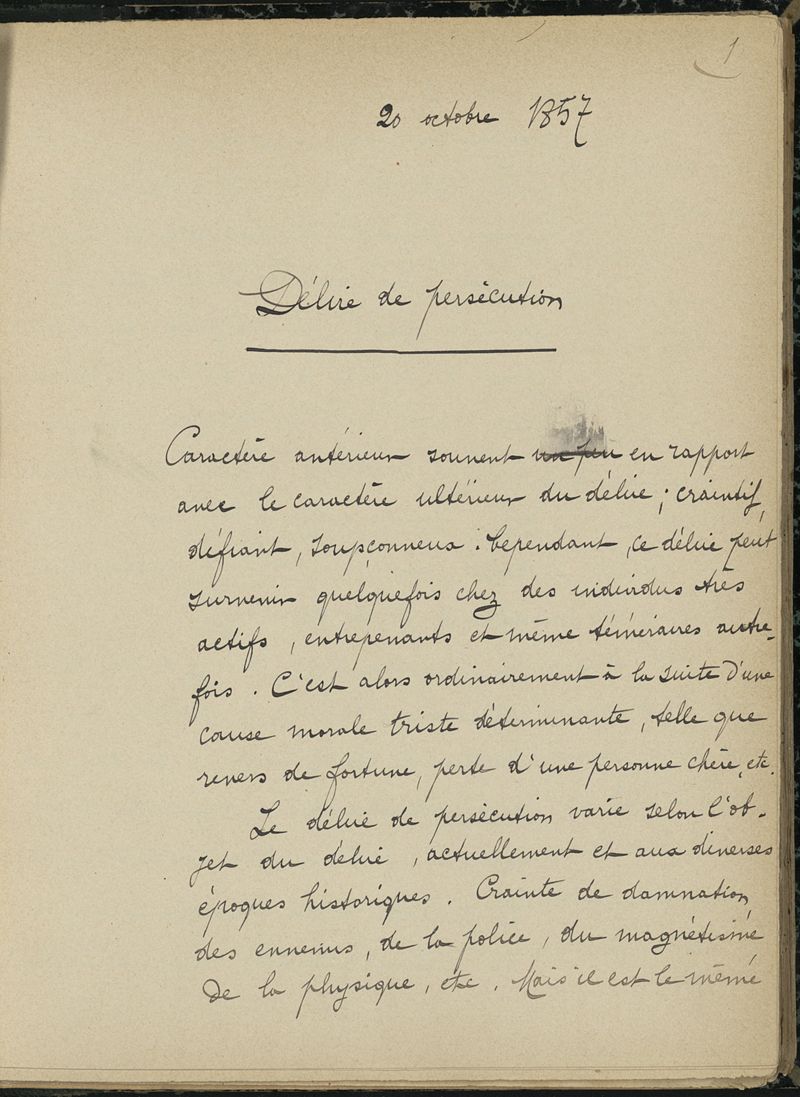 1
20 octobre 1857
Délire de persécution
Caractère antérieur souvent un peu en rapport
avec le caractère ultérieur du délire ; craintif,
défiant, soupçonneux. Cependant, ce délire peut
survenir quelquefois chez des individus très
actifs, entrepenants et même téméraires autre-
fois. C'est alors ordinairement à la suite d'une
cause morale triste déterminante, telle que
revers de fortune, perte d'une personne chère, etc.
Le délire de persécution varie selon l'ob-
jet du délire, actuellement et aux diverses
époques historiques. Crainte de damnation,
des ennemis, de la police, du magnétisme
de la physique, etc. Mais il est le même